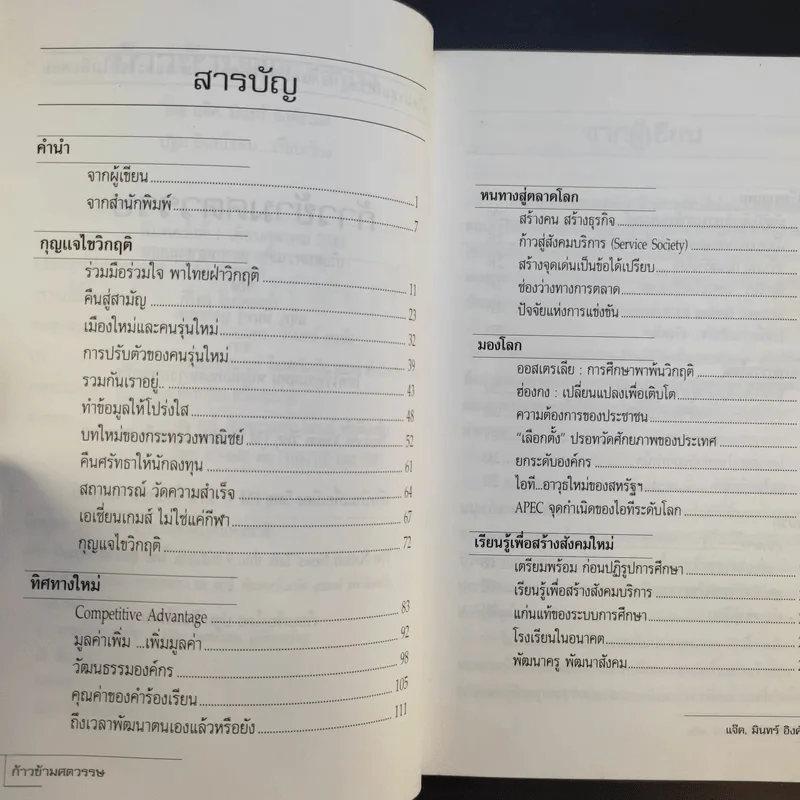 สารบัญ
คำนำ
จากผู้เขียน 1
จากสำนักพิมพ์ 7
กุญแจไขวิกฤติ
ร่วมมือร่วมใจ พาไทยฝ่าวิกฤติ 11
คืนสู่สามัญ 23
เมืองใหม่และคนรุ่นใหม่ 32
การปรับตัวของคนรุ่นใหม่ 39
รวมกันเราอยู่.. 43
ทำข้อมูลให้โปร่งใส 48
บทใหม่ของกระทรวงพาณิชย์ 52
คืนศรัทธาให้นักลงทุน 61
สถานการณ์ วัดความสำเร็จ 64
เอเชี่ยนเกมส์ ไม่ใช่แค่กีฬา 67
กุญแจไขวิกฤติ 72
ทิศทางใหม่
Competitive Advantage 83
มูลค่าเพิ่ม ...เพิ่มมูลค่า 92
วัฒนธรรมองค์กร 98
คุณค่าของคำร้องเรียน 105
ถึงเวลาพัฒนาตนเองแล้วหรือยัง 111
ก้าวข้ามศตวรรษ
หนทางสู่ตลาดโลก
สร้างคน สร้างธุรกิจ
ก้าวสู่สังคมบริการ (Service Society)
สร้างจุดเด่นเป็นข้อได้เปรียบ
ช่องว่างทางการตลาด
ปัจจัยแห่งการแข่งขัน
มองโลก
ออสเตรเลีย : การศึกษาพาพ้นวิกฤติ
ฮ่องกง : เปลี่ยนแปลงเพื่อเติบโต
ความต้องการของประชาชน
“เลือกตั้ง” ปรอทวัดศักยภาพของประเทศ
ยกระดับองค์กร
ไอที...อาวุธใหม่ของสหรัฐฯ
APEC จุดกำเนิดของไอทีระดับโลก
เรียนรู้เพื่อสร้างสังคมใหม่
เตรียมพร้อม ก่อนปฏิรูปการศึกษา
เรียนรู้เพื่อสร้างสังคมบริการ
แก่นแท้ของระบบการศึกษา
โรงเรียนในอนาคต
พัฒนาครู พัฒนาสังคม
แจ๊ด, มินทร์